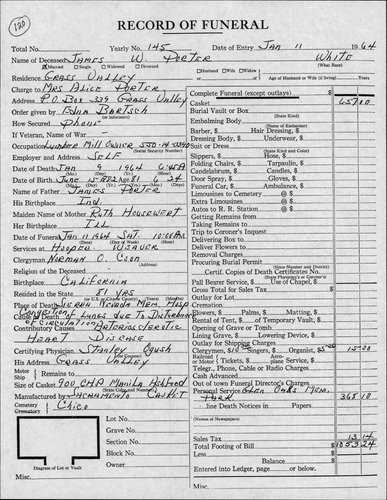 120
RECORD OF FUNERAL
Total No. Yearly No. 145 Date of Entry JAN 11 1964
Name of Deceased JAMES W. PORTER WHITE
Married Single Widowed Divorced (What Race)
Residence GRASS VALLEY Husband Wife Widow of Age of Husband or Wife (if living) Years
Charge to MRS ALICE PORTER
Address P.O. BOX 339 GRASS VALLEY
Order given by EDNA BARTSCH
How Secured PHONE
If Veteran, Name of War
Occupation LUMBER MILL OWNER
(Social Security Number)
Employer and Address SELF
Date of Death JAN 9 1964
Date of Birth JUNE 15
Name of Father JAMES PORTER
His Birthplace IND.
Maiden Name of Mother RUTH
Her Birthplace ILL
Date of Funeral JAN 11 1964 SAT. 10:00 AM
Services at HOOPER-WEAVER
Clergyman NORMAN O. COON
(Address)
Religion of the Deceased
Birthplace CALIFORNIA
Resided in the State 81 YRS
Place of Death SIERRA NEVADA MEM. HOSP
Cause of Death CONGESTION OF LUNGS DUE TO DISTURBANCE
OF CIRCULATION
Contributory Causes ARTERIOSCLEROTIC
HEART DISEASE
Certifying Physician STANLEY
His Address GRASS VALLEY
Motor
Ship Remains to
Size of Casket
Manufactured by SACRAMENTO CASKET
Cemetery
Crematory CHICO
Lot No.
Grave No.
Section No.
Block No.
Owner
Diagram of Lot or Vault
Misc.
Complete Funeral (except outlays) $
Casket 657.00
Burial Vault or Box
(State Kind)
Embalming Body
(Name of Embalmer)
Barber, $ Hair Dressing, $
Dressing Body, $ Underwear, $
Suit or Dress
(State Kind and Color)
Slippers, $ Hose, $
Folding Chairs, $ Tarpaulin, $
Candelabrum, $ Candles, $
Door Spray, $ Gloves, $
Funeral Car, $ Ambulance, $
Limousines to Cemetery @ $
Extra Limousines @ $
Autos to R. R. Station @ $
Getting Remains from
Taking Remains to
Trip to Coroner's Inquest
Delivering Box to
Deliver Flowers to
Removal Charges
Procuring Burial Permit
(State Number and District)
Certif. Copies of Death Certificates No.
(State Physician's or Coroner's)
Pall Bearer Service, $ Use of Chapel, $
Gross Total for Sales Tax $
Outlay for Lot
Cremation
Flowers, $ Palms, $ Matting, $
Rental of Tent, $ of Temporary Vault, $
Opening of Grave or Tomb
Lining Grave, $ Lowering Device, $
Outlay for Shipping Charges
Clergymen, $ Singers, $ Organist, $ 15.00
Railroad
or Motor Tickets, $ plane Service, $
Telegr., Phone, Cable or Radio Charges
Cash Advanced
Out of town Funeral Director's Charges
Personal Service GLEN OAKS MEM.
PARK 365.10
line Death Notices in Papers
(Names of Newspapers)
Sales Tax 13.14
Total Footing of Bill $ 1053.24
Less
Balance $
Entered into Ledger, page or below.
Misc.